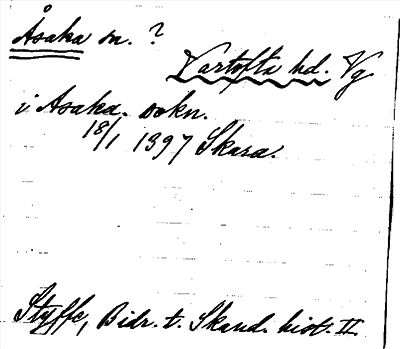 Åsaka sn. ?
Vartofta hd. Vg
i Asaka sokn.
18/1 1397 Skara.
Styffe, Bidr. t. Skand. hist. II.